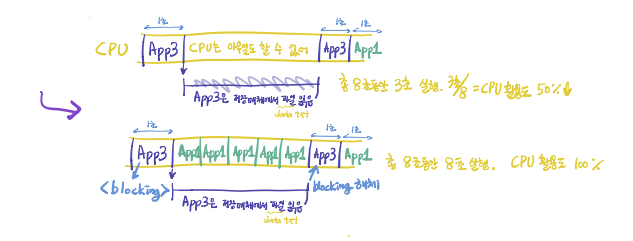 1초 1초 1초
CPU App3 CPU는 아무일도 할 수 없어 App3 App1
App3은 저장매체에서 파일 읽음
data txt
총 8초동안 3초 실행. 3/8 = CPU 활용도 50%↓
1초 1초 1초
App3 App1 App1 App1 App1 App1 App3 App1
<blocking> blocking 해제
App3은 저장매체에서 파일 읽음
data txt
총 8초동안 8초 실행. CPU 활용도 100%